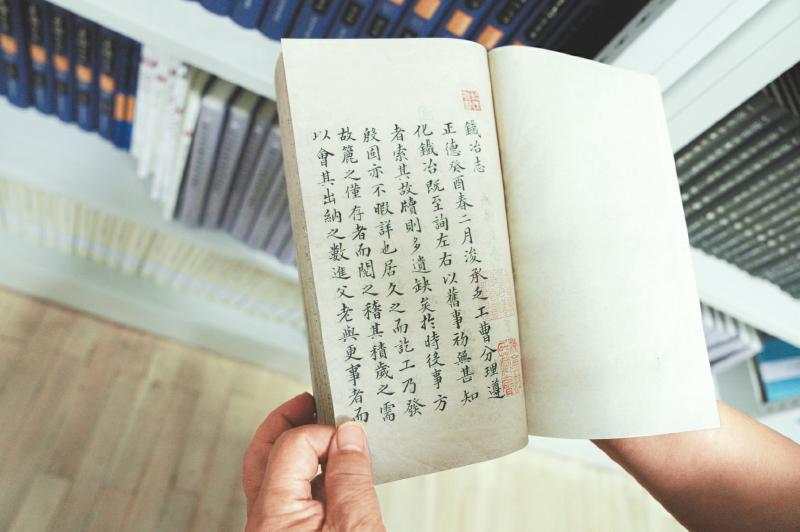 鐵冶志
正德癸酉春二月浚承乏工曹分理遵
化鐵冶既至詢左右以舊事礽無甚知
者索其故牘則多遺缺矣於時後事方
殷固亦不暇詳也居久之而訖工乃發
故簏之僅存者而閱之稽其積歲之需
以會其出納之數進父老與更事者而